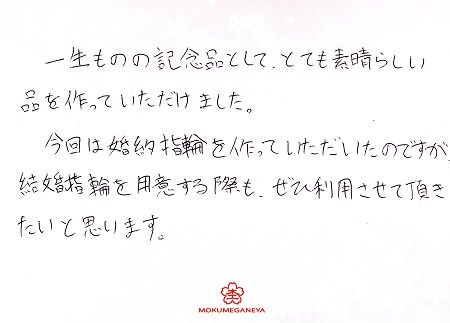 一生ものの記念品として、とても素晴らしい
品を作っていただけました。
今回は婚約指輪を作っていただいたのですが、
結婚指輪を用意する際も、ぜひ利用させて頂き
たいと思います。
杢
MOKUMEGANEYA